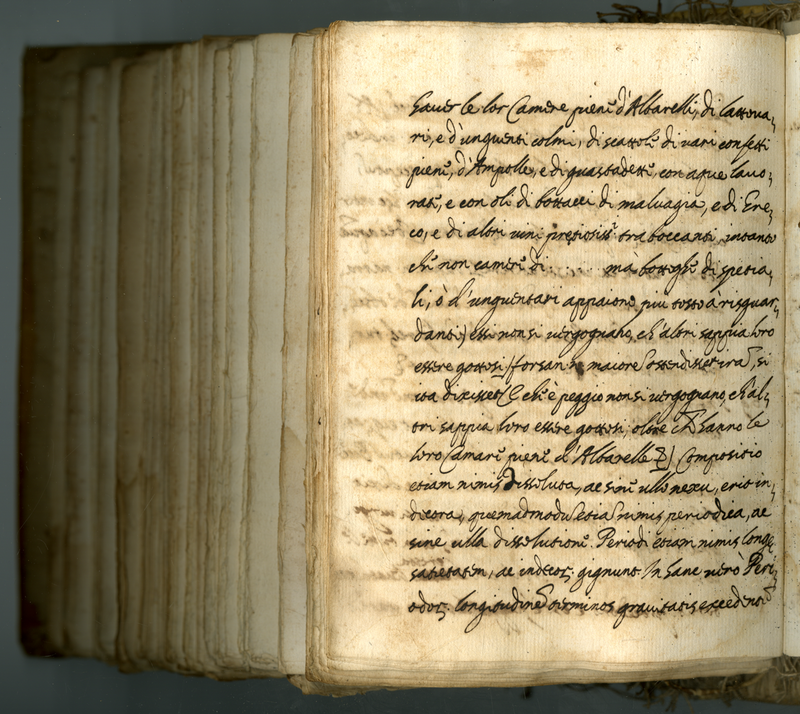 haver le lor Camere piene d'Albarelli, di lattova,
ri, e d'unguenti colmi, di scattole di vari confetti
piene, d'Ampolle, e di guastadette, con aque lavo,
rate, e con oli di bottacci di malvagia, e di Gre,
co, e di altri vini pretiosiss. traboccanti intanto
che non camere di . . . . mà botteghe di spetia,
li, ò d'unguentari appaiono più tosto à risguar,
danti) essi non si vergognano, ch'altri sappia loro
essere gottosi) forsan maiore ostendisset ira, si
ita dixisset che è peggio non si vergognano, ch'al,
tri sappia loro essere gottosi; oltre ch hanno le
loro Camare piene d'Albarelle &) Compositio
etiam nimis dissoluta, ac sine ullo nexu, erit in,
decora, quemadmodu etia nimis periodica, ac
sine ulla dissolutione. Periodi etiam nimis longe
satietatem, ac indecor gignunt. In hanc verò Peri,
odor longitudine terminos gravitatis excedent